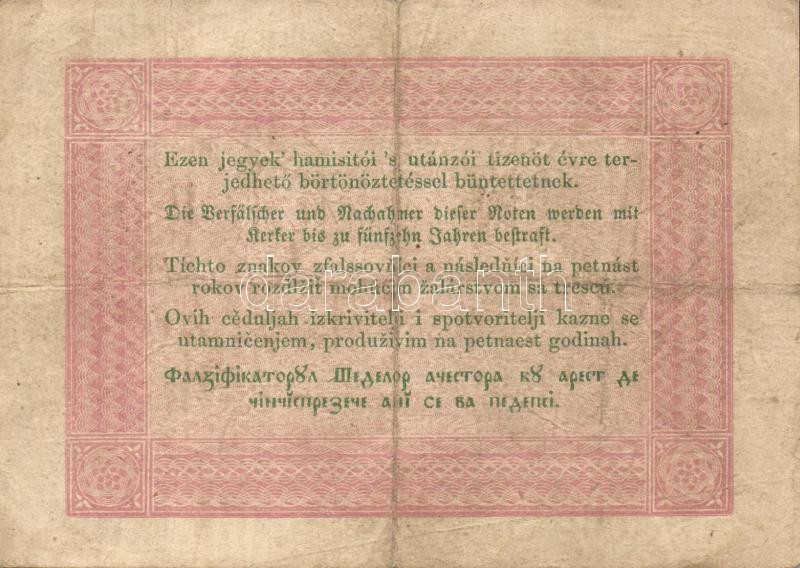 Ezen jegyek' hamisitói 's utánzói tizenöt évre ter-
jedhető börtönöztetéssel büntettetnek.
Die Verfälscher und Nachahmer dieser Noten werden mit
Kerker bis zu fünfzehn Jahren bestraft.
Tíchto znakov zfalssovitelci a následňíci na petnást
rokov rozďlžiť mohácim žalárstvom sa trescú.
darabanth
Ovih cěduljah izkrivitelji i spotvoritelji kazne se
utamničenjem, produživim na petnaest godinah.
Фалꙁіфікаторꙋл Шеделор ачестора кꙋ арест де
чінчіспреꙁече ані се ва педепсі.